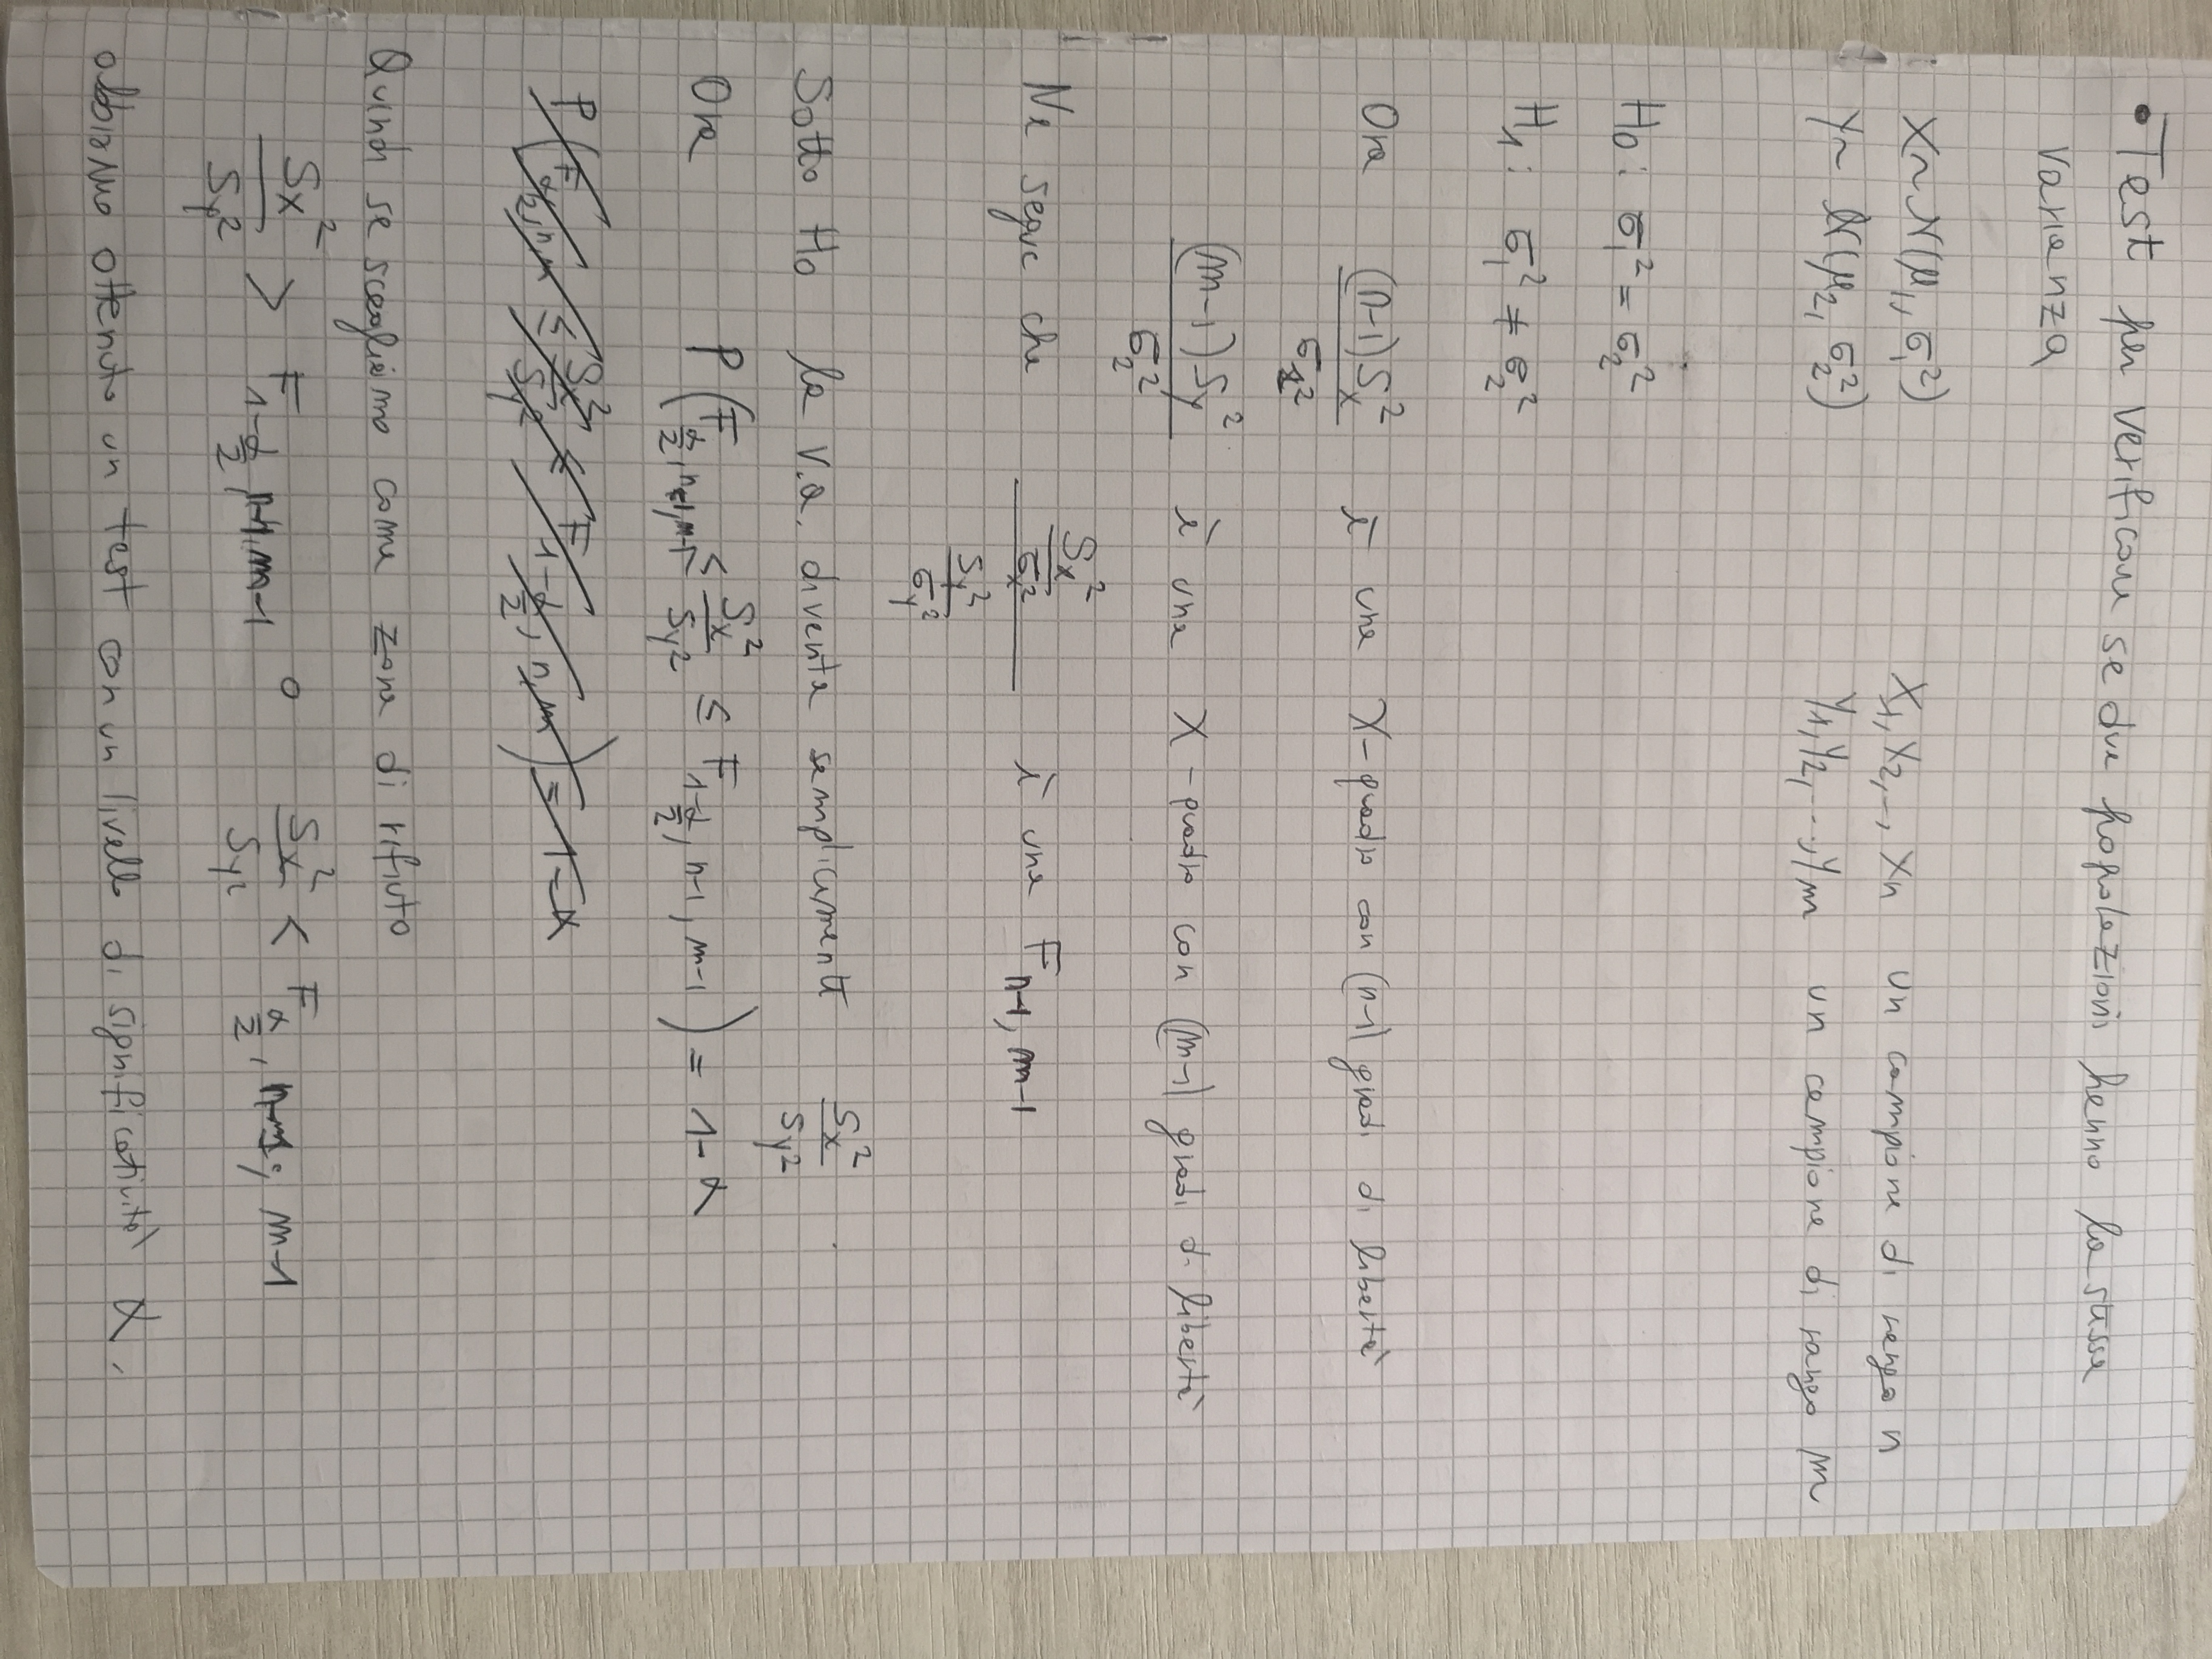 • Test per verificare se due popolazioni hanno la stessa
varianza
X ~ N(μ₁, σ₁²) X₁, X₂, .., Xn un campione di rango n
Y ~ N(μ₂, σ₂²) Y₁, Y₂, ..., Ym un campione di rango m
H0: σ₁² = σ₂²
H₁: σ₁² ≠ σ₂²
Ora (n-1)Sx² / σ₁² è una X-quadro con (n-1) gradi di libertà
(m-1)Sy² / σ₂² è una X-quadro con (m-1) gradi di libertà
Ne segue che (Sx² / σx²) / (Sy² / σy²) è una F n-1, m-1
Sotto H0 la v.a. diventa semplicemente Sx² / Sy²
Ora P(F α/2, n-1, m-1 ≤ Sx² / Sy² ≤ F 1-α/2, n-1, m-1) = 1-α
P(F α/2, n, m ≤ Sx² / Sy² ≤ F 1-α/2, n, m) = 1-α
Quindi se scegliamo come zona di rifiuto
Sx² / Sy² > F 1-α/2, n-1, m-1 o Sx² / Sy² < F α/2, n-1; m-1
abbiamo ottenuto un test con un livello di significatività α.